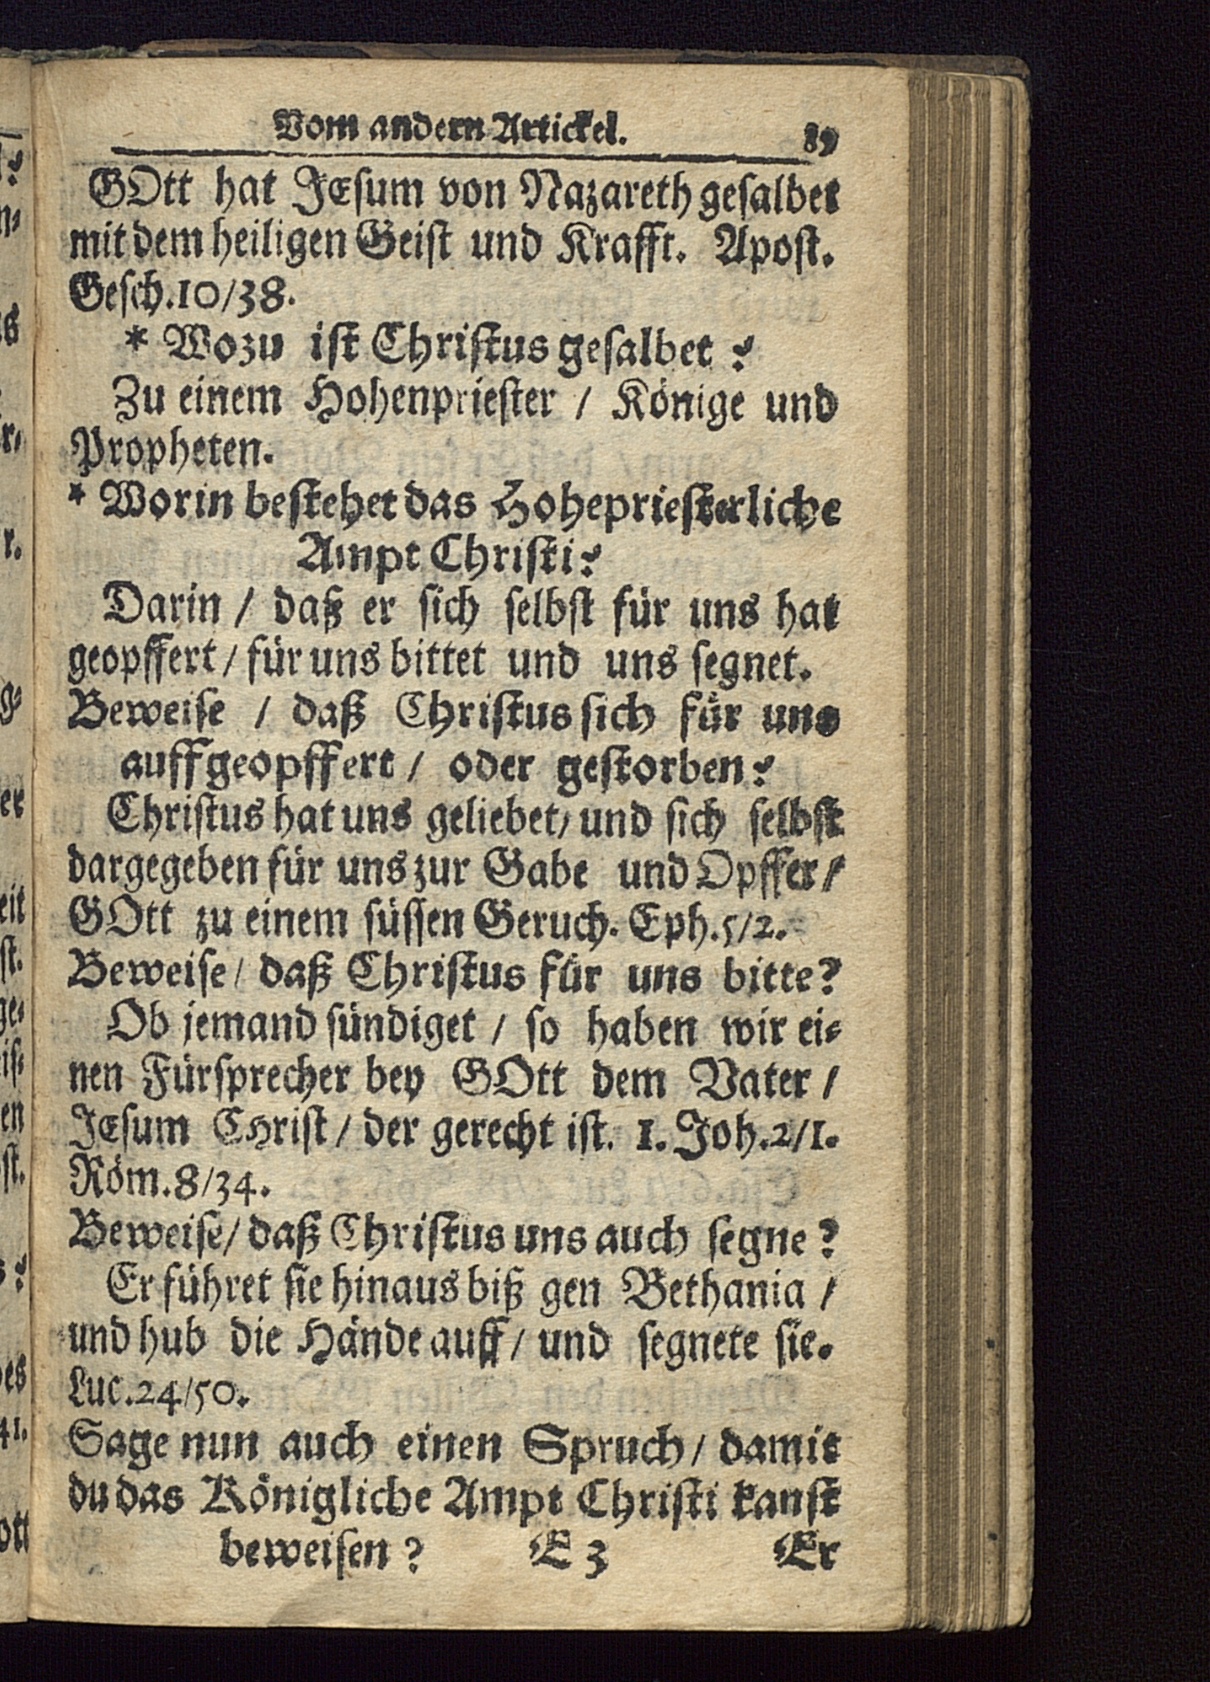 Vom andern Artickel. 89
GOtt hat JEsum von Nazareth gesalbet
mit dem heiligen Geist und Krafft. Apost.
Gesch.10/38.
* Wozu ist Christus gesalbet?
Zu einem Hohenpriester / Könige und
Propheten.
* Worin bestehet das Hohepriesterliche
Ampt Christi?
Darin / daß er sich selbst für uns hat
geopffert / für uns bittet und uns segnet.
Beweise / daß Christus sich für uns
auffgeopffert / oder gestorben?
Christus hat uns geliebet/ und sich selbst
dargegeben für uns zur Gabe und Opffer /
GOtt zu einem süssen Geruch. Eph.5/2.
Beweise / daß Christus für uns bitte?
Ob jemand sündiget / so haben wir ei-
nen Fürsprecher bey GOtt dem Vater /
JEsum CHrist / der gerecht ist. 1. Joh.2/1.
Röm.8/34.
Beweise/ daß Christus uns auch segne?
Er führet sie hinaus biß gen Bethania /
und hub die Hände auff / und segnete sie.
Luc.24/50.
Sage nun auch einen Spruch / damit
du das Königliche Ampt Christi kanst
beweisen? E 3 Er